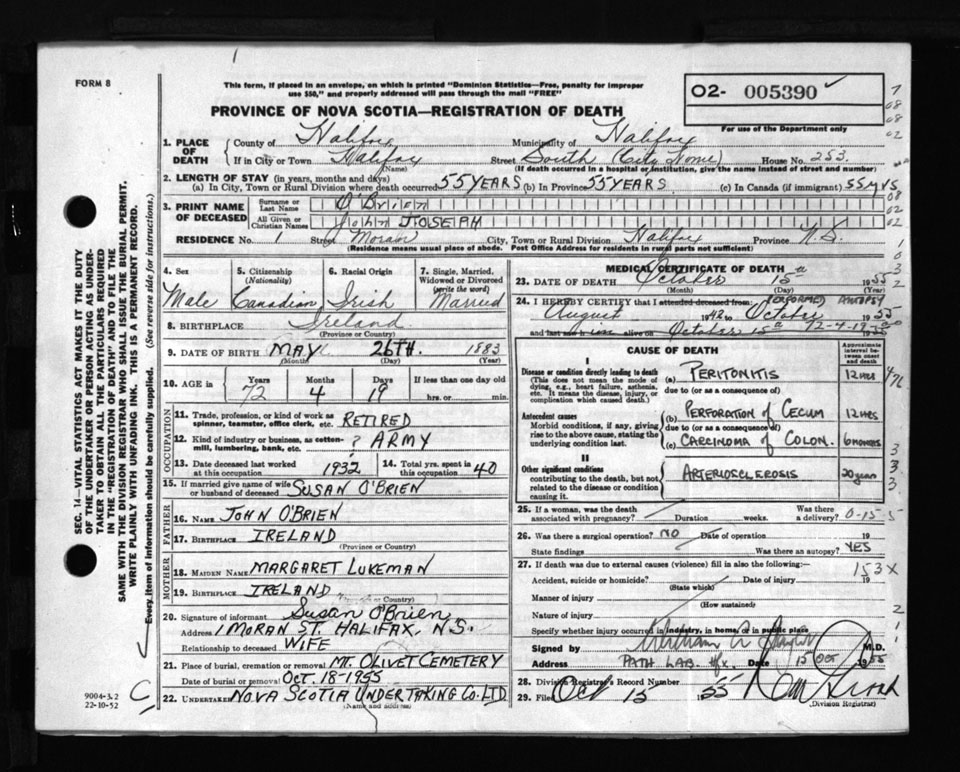 FORM 8
This form, if placed in an envelope, on which is printed "Dominion Statistics—Free, penalty for improper
use $50," and properly addressed will pass through the mail "FREE"
O2- 005390
For use of the Department only
PROVINCE OF NOVA SCOTIA—REGISTRATION OF DEATH
1. PLACE OF DEATH County of Halifax Municipality of Halifax
If in City or Town Halifax Street South (City Home) House No. 253
(Name) (If death occurred in a hospital or institution, give its name instead of street and number)
2. LENGTH OF STAY (in years, months and days)
(a) In City, Town or Rural Division where death occurred 55 YEARS (b) In Province 55 YEARS. (c) In Canada (if immigrant) 55 yrs
3. PRINT NAME OF DECEASED Surname or Last Name O'Brien
All Given or Christian Names John JOSEPH
RESIDENCE No. 1 Street Moran City, Town or Rural Division Halifax Province N.S.
(Residence means usual place of abode. Post Office Address for residents in rural parts not sufficient)
4. Sex Male
5. Citizenship (Nationality) Canadian
6. Racial Origin Irish
7. Single, Married, Widowed or Divorced (write the word) Married
8. BIRTHPLACE Ireland
(Province or Country)
9. DATE OF BIRTH MAY 26TH. 1883
(Month) (Day) (Year)
10. AGE in Years 72 Months 4 Days 19 If less than one day old
hrs. or min.
OCCUPATION
11. Trade, profession, or kind of work as spinner, teamster, office clerk, etc. RETIRED
12. Kind of industry or business, as cotton-mill, lumbering, bank, etc. ? ARMY
13. Date deceased last worked at this occupation 1932 14. Total yrs. spent in this occupation 40
15. If married give name of wife or husband of deceased SUSAN O'BRIEN
FATHER
16. NAME JOHN O'BRIEN
17. BIRTHPLACE IRELAND
(Province or Country)
MOTHER
18. MAIDEN NAME MARGARET LUKEMAN
19. BIRTHPLACE IRELAND
(Province or Country)
20. Signature of informant Susan O'Brien
Address 1 MORAN ST. HALIFAX, N.S.
Relationship to deceased WIFE
21. Place of burial, cremation or removal MT. OLIVET CEMETERY
Date of burial or removal OCT. 18-1955
22. UNDERTAKER NOVA SCOTIA UNDERTAKING CO. LTD
(Name and address)
MEDICAL CERTIFICATE OF DEATH
23. DATE OF DEATH October 15th 1955
(Month) (Day) (Year)
24. I HEREBY CERTIFY that I attended deceased from: PERFORMED AUTOPSY
August 1942 to October 1955
and last saw h im alive on October 15th 1955
72-4-19
CAUSE OF DEATH
Approximate interval between onset and death
I
Disease or condition directly leading to death (a) PERITONITIS 12 HRS
(This does not mean the mode of dying, e.g., heart failure, asthenia, etc. It means the disease, injury, or complication which caused death.)
due to (or as a consequence of)
Antecedent causes (b) PERFORATION of CECUM 12 HRS
Morbid conditions, if any, giving rise to the above cause, stating the underlying condition last.
due to (or as a consequence of)
(c) CARCINOMA of COLON. 6 MONTHS
II
Other significant conditions contributing to the death, but not related to the disease or condition causing it. ARTERIOSCLEROSIS 20 years
25. If a woman, was the death associated with pregnancy? Duration weeks. Was there a delivery? 0-15-5
26. Was there a surgical operation? NO Date of operation 19
State findings Was there an autopsy? YES
27. If death was due to external causes (violence) fill in also the following:— 153X
Accident, suicide or homicide? Date of injury 19
(State which)
Manner of injury
(How sustained)
Nature of injury
Specify whether injury occurred in industry, in home, or in public place
Signed by M.D.
Address PATH LAB. Hfx. Date 15 OCT 1955
28. Division Registrar's Record Number
29. Filed Oct 15 1955
(Division Registrar)
SEC. 14—VITAL STATISTICS ACT MAKES IT THE DUTY
OF THE UNDERTAKER OR PERSON ACTING AS UNDER-
TAKER TO OBTAIN ALL THE PARTICULARS REQUIRED
IN THE "REGISTRATION OF DEATH" AND TO FILE THE
SAME WITH THE DIVISION REGISTRAR WHO SHALL ISSUE THE BURIAL PERMIT.
WRITE PLAINLY WITH UNFADING INK. THIS IS A PERMANENT RECORD.
Every item of information should be carefully supplied. (See reverse side for instructions.)
9004-3.2
22-10-52
C